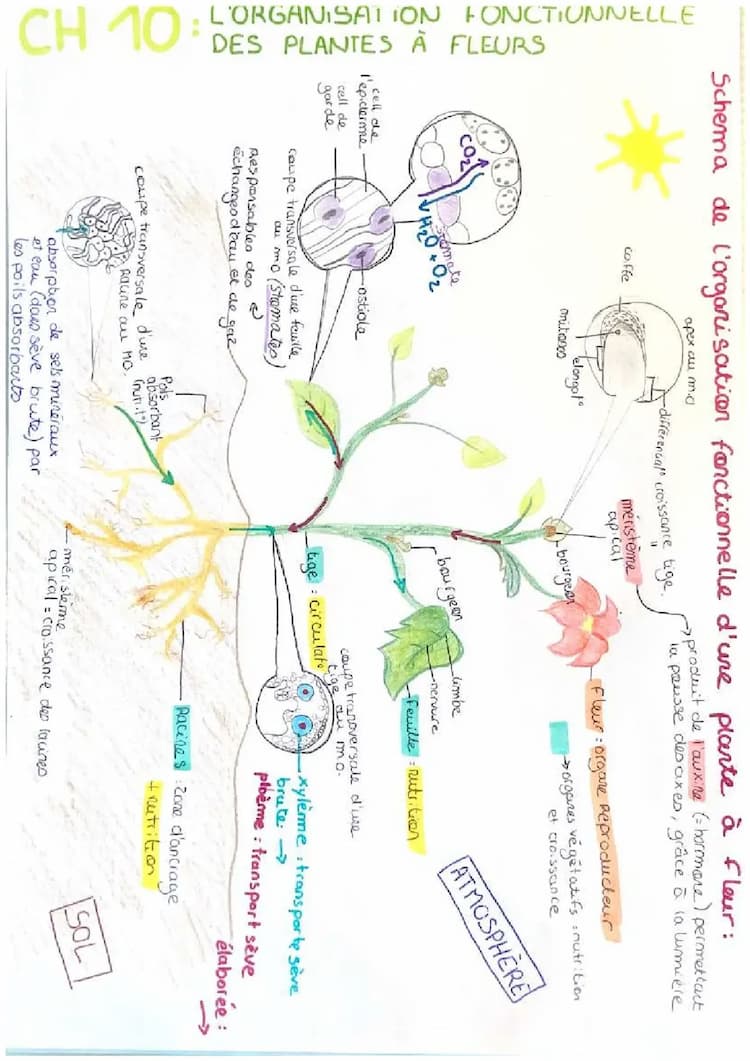 CH 10 :
L'ORGANISATION FONCTIONNELLE
DES PLANTES À FLEURS
Schema de l'organisation fonctionnelle d'une plante à fleur :
apex au m.o
coiffe
mitoses
elongat°
différenciat°
croissance tige.
=
méristème
apical
→ produit de l'auxine (= hormone) permettant
la pousse des axes, grâce à la lumière
bourgeon
Fleur : organe REPRODUCTEUR
→ organes végétatifs : nutrition
et croissance
CO2
H2O + O2
stomate
cell de
l'epiderme
cell de
garde
ostiole
coupe transversale d'une feuille
au mo (stomates)
Responsables des
échanges d'eau et de gaz
bourgeon
limbe
nervure
Feuille : nutrition
ATMOSPHÈRE
tige : circulat°
coupe transversale d'une
tige au m.o.
xylème : transporte sève
brute : →
phloème : transport sève
élaborée :
→
coupe transversale d'une
racine au MO.
absorption de sels minéraux
et eau (dans sève brute) par
les poils absorbants
Poils
absorbant
(nutrit°)
méristème
apical = croissance des racines
Racines : zone d'ancrage
+ nutrition
SOL